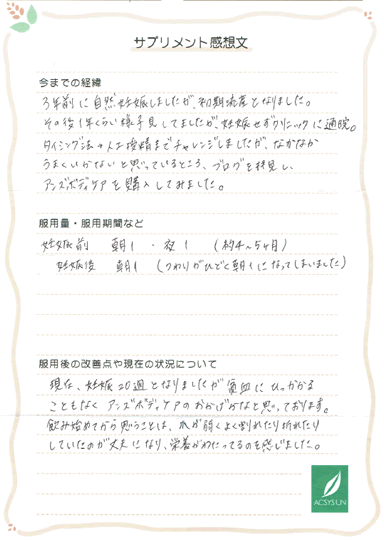 サプリメント感想文
今までの経緯
3年前に自然妊娠しましたが、初期流産となりました。
その後1年くらい様子見してましたが、妊娠せずクリニックに通院。
タイミング法→人工授精までチャレンジしましたが、なかなか
うまくいかないと思っているところ、ブログを拝見し、
アンズボディケアを購入してみました。
服用量・服用期間など
妊娠前 朝1・夜1 (約4〜5ヶ月)
妊娠後 朝1 (つわりがひどく朝1になってしまいました)
服用後の改善点や現在の状況について
現在、妊娠20週となりましたが貧血にひっかかる
こともなくアンズボディケアのおかげかなと思っております。
飲み始めてから思うことは、爪が弱くよく割れたり折れたり
していたのが丈夫になり、栄養がわたってるのを感じました。
ACSYSUN